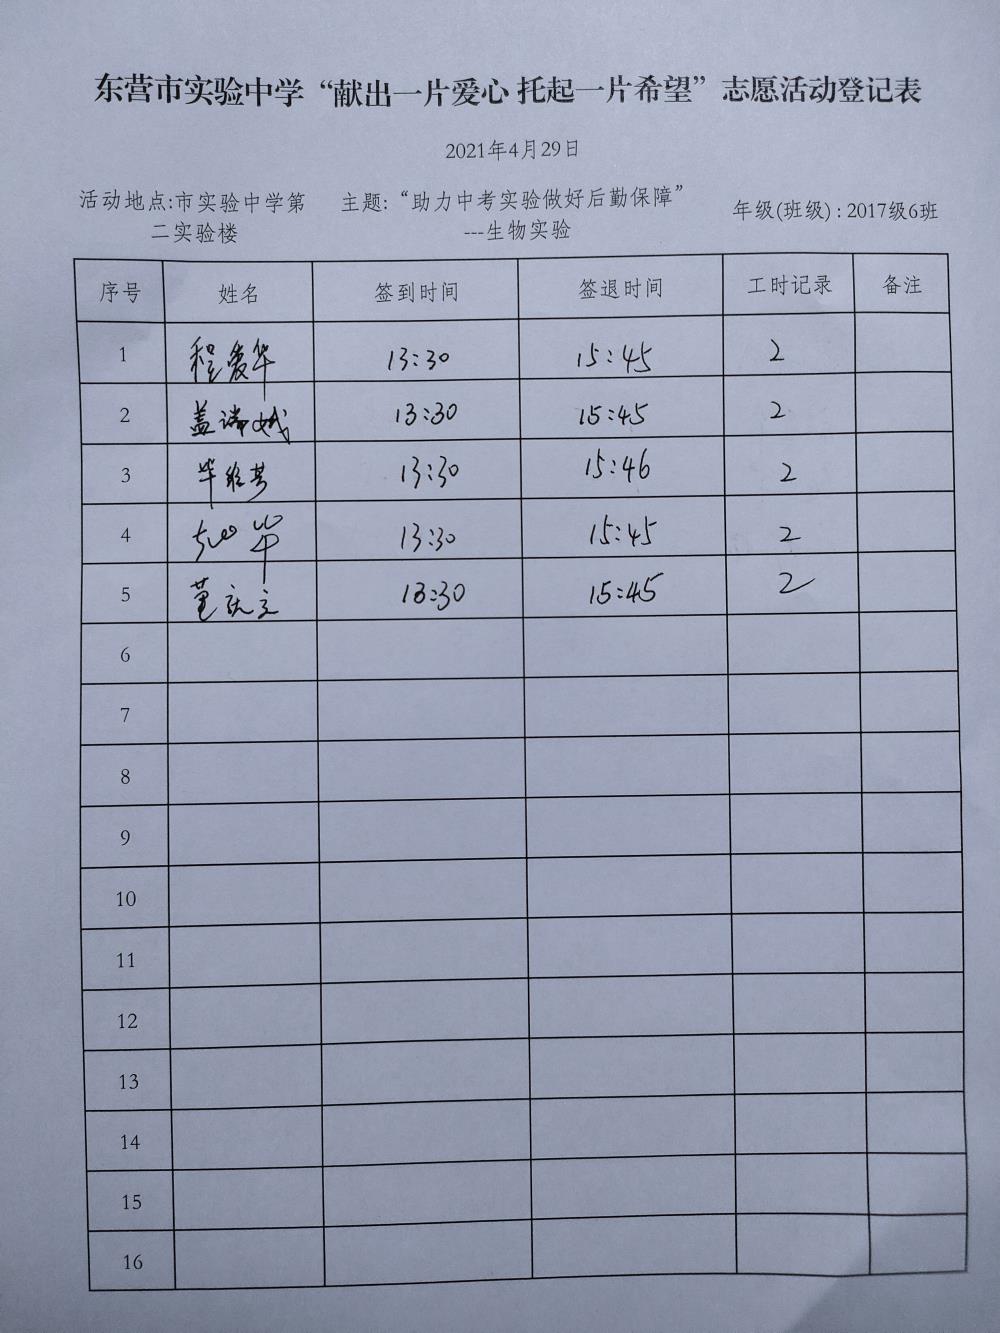 东营市实验中学“献出一片爱心 托起一片希望”志愿活动登记表
2021年4月29日
活动地点:市实验中学第二实验楼
主题:“助力中考实验做好后勤保障”
---生物实验
年级(班级) : 2017级6班
序号 姓名 签到时间 签退时间 工时记录 备注
1 程爱华 13:30 15:45 2
2 盖瑞娥 13:30 15:45 2
3 13:30 15:46 2
4 13:30 15:45 2
5 董庆立 13:30 15:45 2
6
7
8
9
10
11
12
13
14
15
16